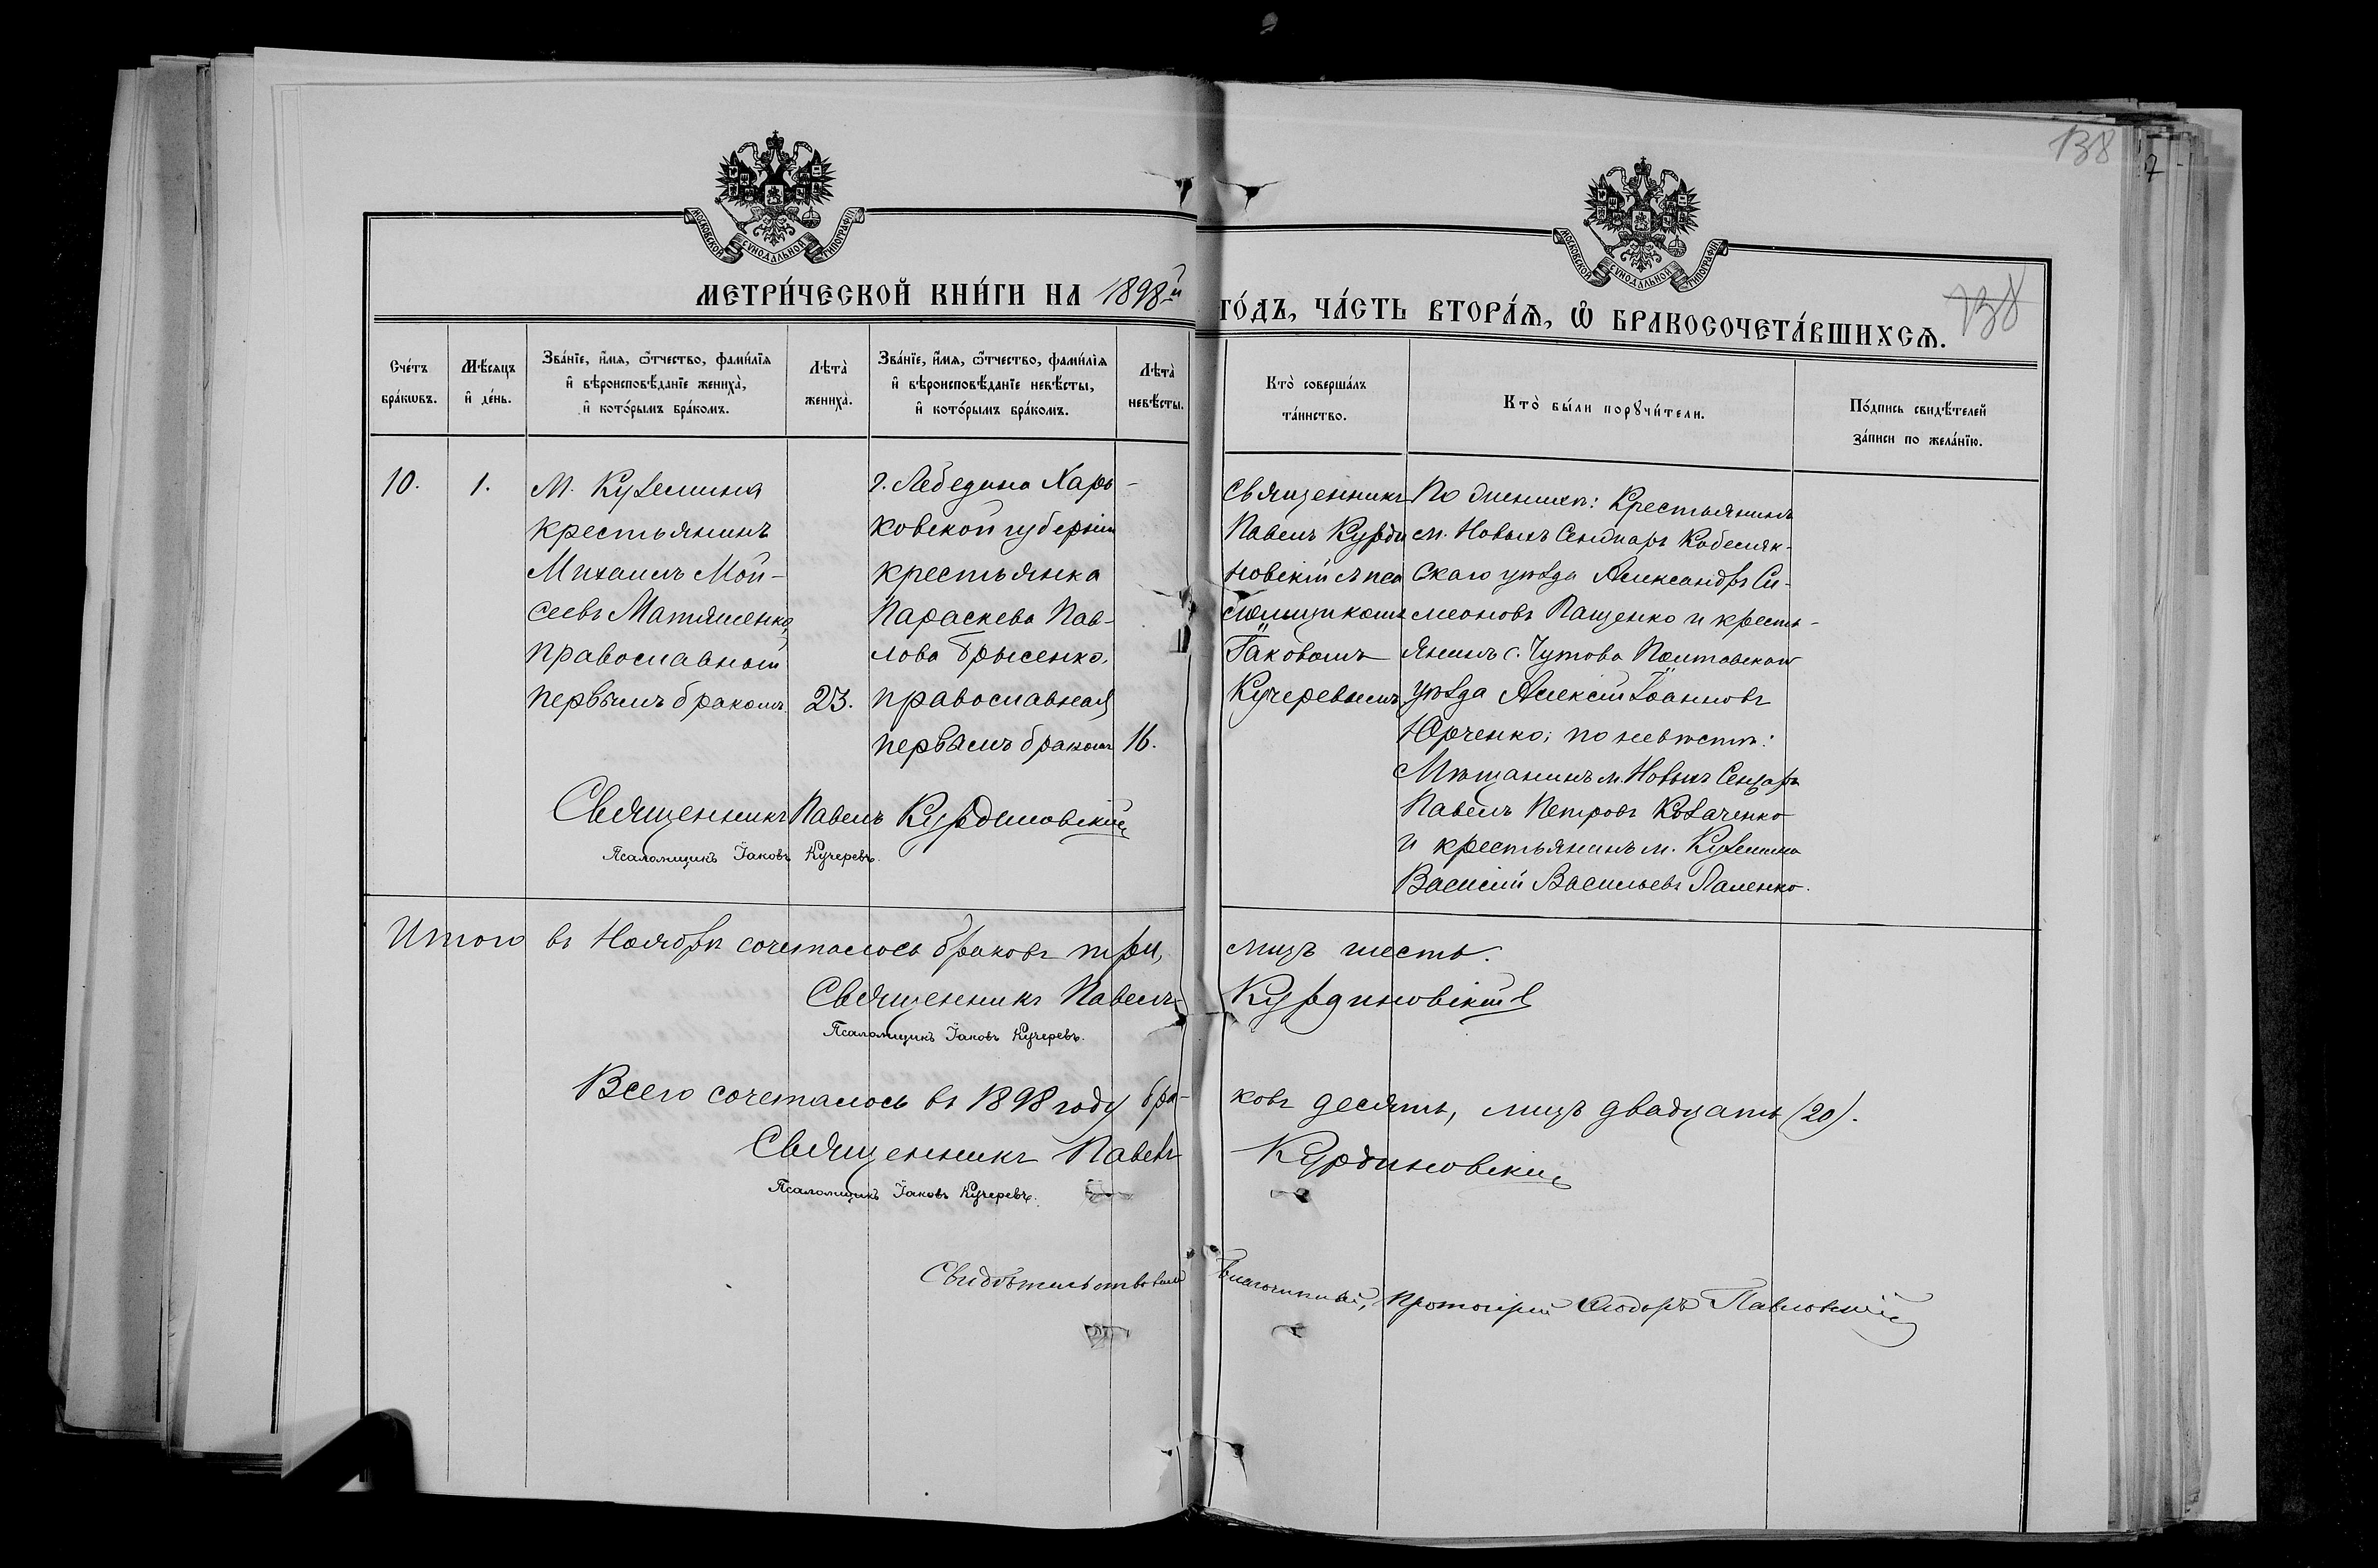 138
7
МОСКОВСКОЙ СУНОДАЛЬНОЙ ТИПОГРАФІИ
МОСКОВСКОЙ СУНОДАЛЬНОЙ ТИПОГРАФІИ
МЕТРИ́ЧЕСКОЙ КНИ́ГИ НА 1898й
ГО́ДЪ, ЧА́СТЬ ВТОРА́Ѧ, Ѽ БРАКОСОЧЕТА́ВШИХСѦ.
138
Сче́тъ бра́кѡвъ.
Мѣ́сѧцъ и҆ де́нь.
Зва́нїе, и҆́мѧ, ѻ҆́тчество, фами́лїѧ и҆ вѣроисповѣ́данїе жениха̀, и҆ кото́рымъ бра́комъ.
Лѣта̀ жениха̀.
Зва́нїе, и҆́мѧ, ѻ҆́тчество, фами́лїѧ и҆ вѣроисповѣ́данїе невѣ́сты, и҆ кото́рымъ бра́комъ.
Лѣта̀ невѣ́сты.
Кто̀ соверша́лъ та́инство.
Кто̀ бы́ли порꙋчи́тели.
По́дпись свидѣ́телей за́писи по жела́нїю.
10.
1.
М. Куземина
крестьянинъ
Михаилъ Мои-
сеевъ Матяшенко,
православный
первымъ бракомъ
23.
г. Лебедина Харь-
ковской губерніи
крестьянка
Параскева Пав-
лова Брысенко,
православная
первымъ бракомъ
16.
Священникъ
Павелъ Курди
новскій съ пса
ломщикомъ
Іаковомъ
Кучеревымъ
По жениху: Крестьянинъ
м. Новыхъ Сенжаръ Кобеляк-
скаго уѣзда Александръ Си-
меоновъ Пащенко и кресть-
янинъ с. Чутова Полтавскаго
уѣзда Алексій Іоанновъ
Юрченко; по невѣстѣ:
Мѣщанинъ м. Новыхъ Сенжаръ
Павелъ Петровъ Козаченко
и крестьянинъ м. Куземина
Василій Васильевъ Паленко.
Священникъ Павелъ Курдиновскій
Псаломщикъ Іаковъ Кучеревъ.
Итого въ Ноябрѣ сочеталось браковъ три, лицъ шесть.
Священникъ Павелъ Курдиновскій
Псаломщикъ Іаковъ Кучеревъ.
Всего сочеталось въ 1898 году бра-ковъ десять, лицъ двадцать (20).
Священникъ Павелъ Курдиновскій
Псаломщикъ Іаковъ Кучеревъ.
Свидѣтельствовалъ Благочинный, Протоіерей Ѳеодоръ Павловскій